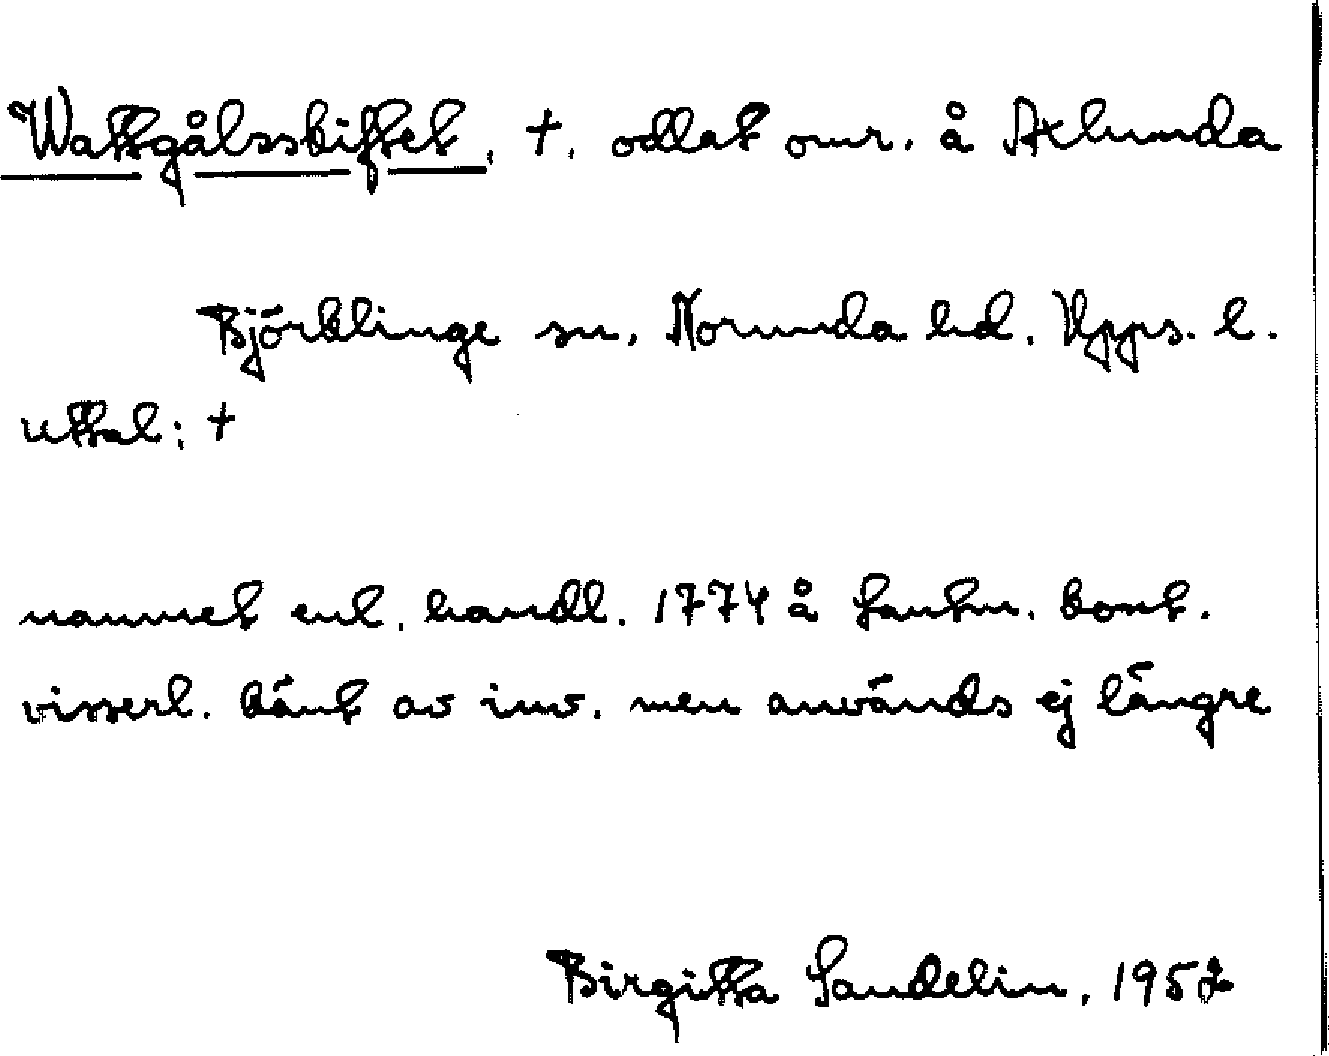 Wattgålsskiftet, +, odlat omr. å Axlunda
Björklinge sn, Norunda hd, Upps. l.
uttal: +
namnet enl. handl. 1774 å Lantm. kont.
visserl. känt av inv. men används ej längre
Birgitta Sandelin, 1952